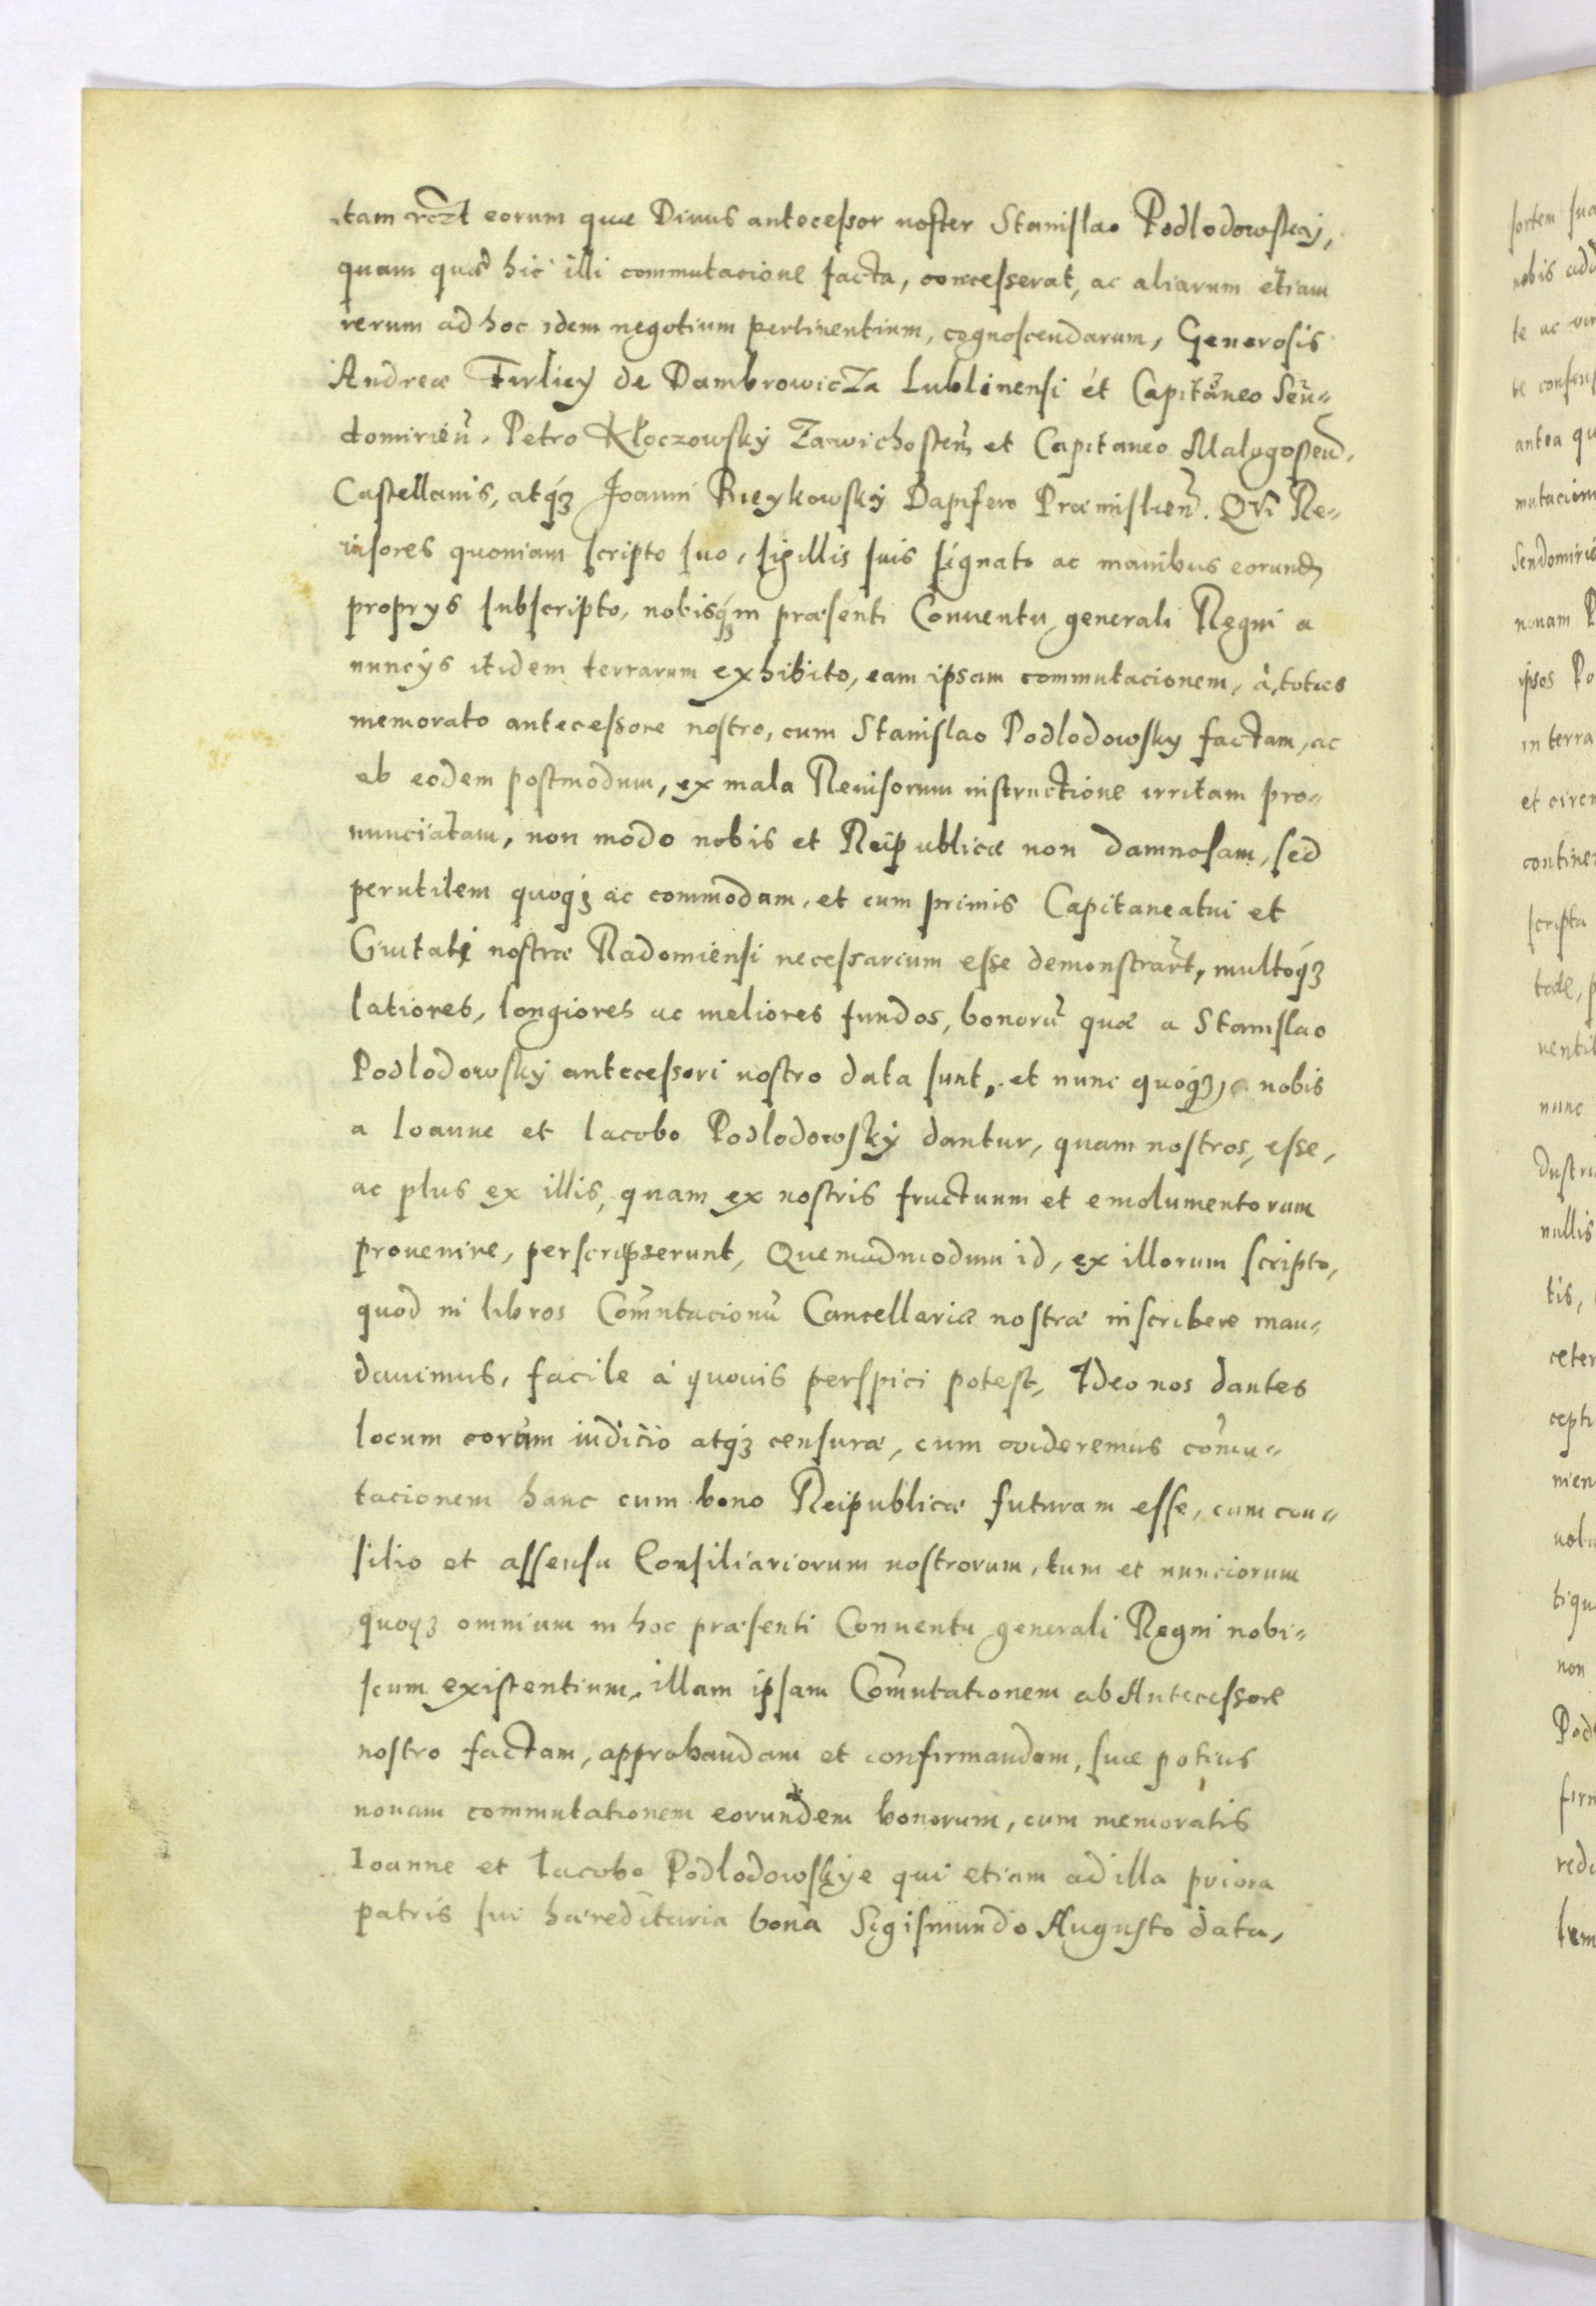 tam eorum quae Diuus antecessor noster Stanislao Podlodowskij,
quam quae hic illi commutacione facta, concesserat, ac aliarum etiam
rerum ad hoc idem negotium pertinentium, cognoscendarum, Generosis
Andreae Firliey de Dambrowicza Lublinensi et Capitaneo Sen„
domirien̄. Petro Kłoczowskÿ Zawichosten̄ et Capitaneo Malogosten̄.
Castellanis, atqꝫ Joanni Bieykowskÿ Dapifero Præmislien̄. Qui Re„
uisores quoniam scripto suo, sigillis suis signato ac manibus eorund
proprys subscripto, nobisqꝫ in præsenti Conuentu generali Regni a
nuncÿs itidem terrarum exhibito, eam ipsam commutacionem, à toties
memorato antecessore nostro, cum Stanislao Podlodowsky factam, ac
ab eodem postmodum, ex mala Reuisorum instructione irritam pro„
nunciatam, non modo nobis et Reipublicæ non damnosam, sed
perutilem quoqꝫ ac commodam, et cum primis Capitaneatui et
Ciuitati nostræ Radomiensi necessarium esse demonstrar̄t, multoqꝫ
latiores, longiores ac meliores fundos, bonorū quæ a Stanislao
Podlodowskÿ antecessori nostro data sunt, et nunc quoqꝫ, nobis
a Ioanne et Iacobo Podlodowskÿ dantur, quam nostros, esse,
ac plus ex illis, quam ex nostris fructuum et emolumentorum
prouenire, perscripserunt, Quemadmodum id, ex illorum scripto,
quod in libros Com̄utacionū Cancellariæ nostræ inscribere man„
dauimus, facile à quouis perspici potest, Ideo nos dantes
locum eorum iudicio atqꝫ censuræ, cum uideremus com̄u„
tacionem hanc cum bono Reipublicæ futuram esse, cum con„
silio et assensu Consiliariorum nostrorum, tum et nunciorum
quoqꝫ omnium in hoc præsenti Conuentu generali Regni nobi„
scum existentium, illam ipsam Com̄utationem ab Antecessore
nostro factam, approbandam et confirmandam, siue potius
nouam commutationem eorundem bonorum, cum memoratis
Ioanne et Iacobo Podlodowskÿe qui etiam ad illa priora
patris sui hæreditaria bona Sigismundo Augusto data,